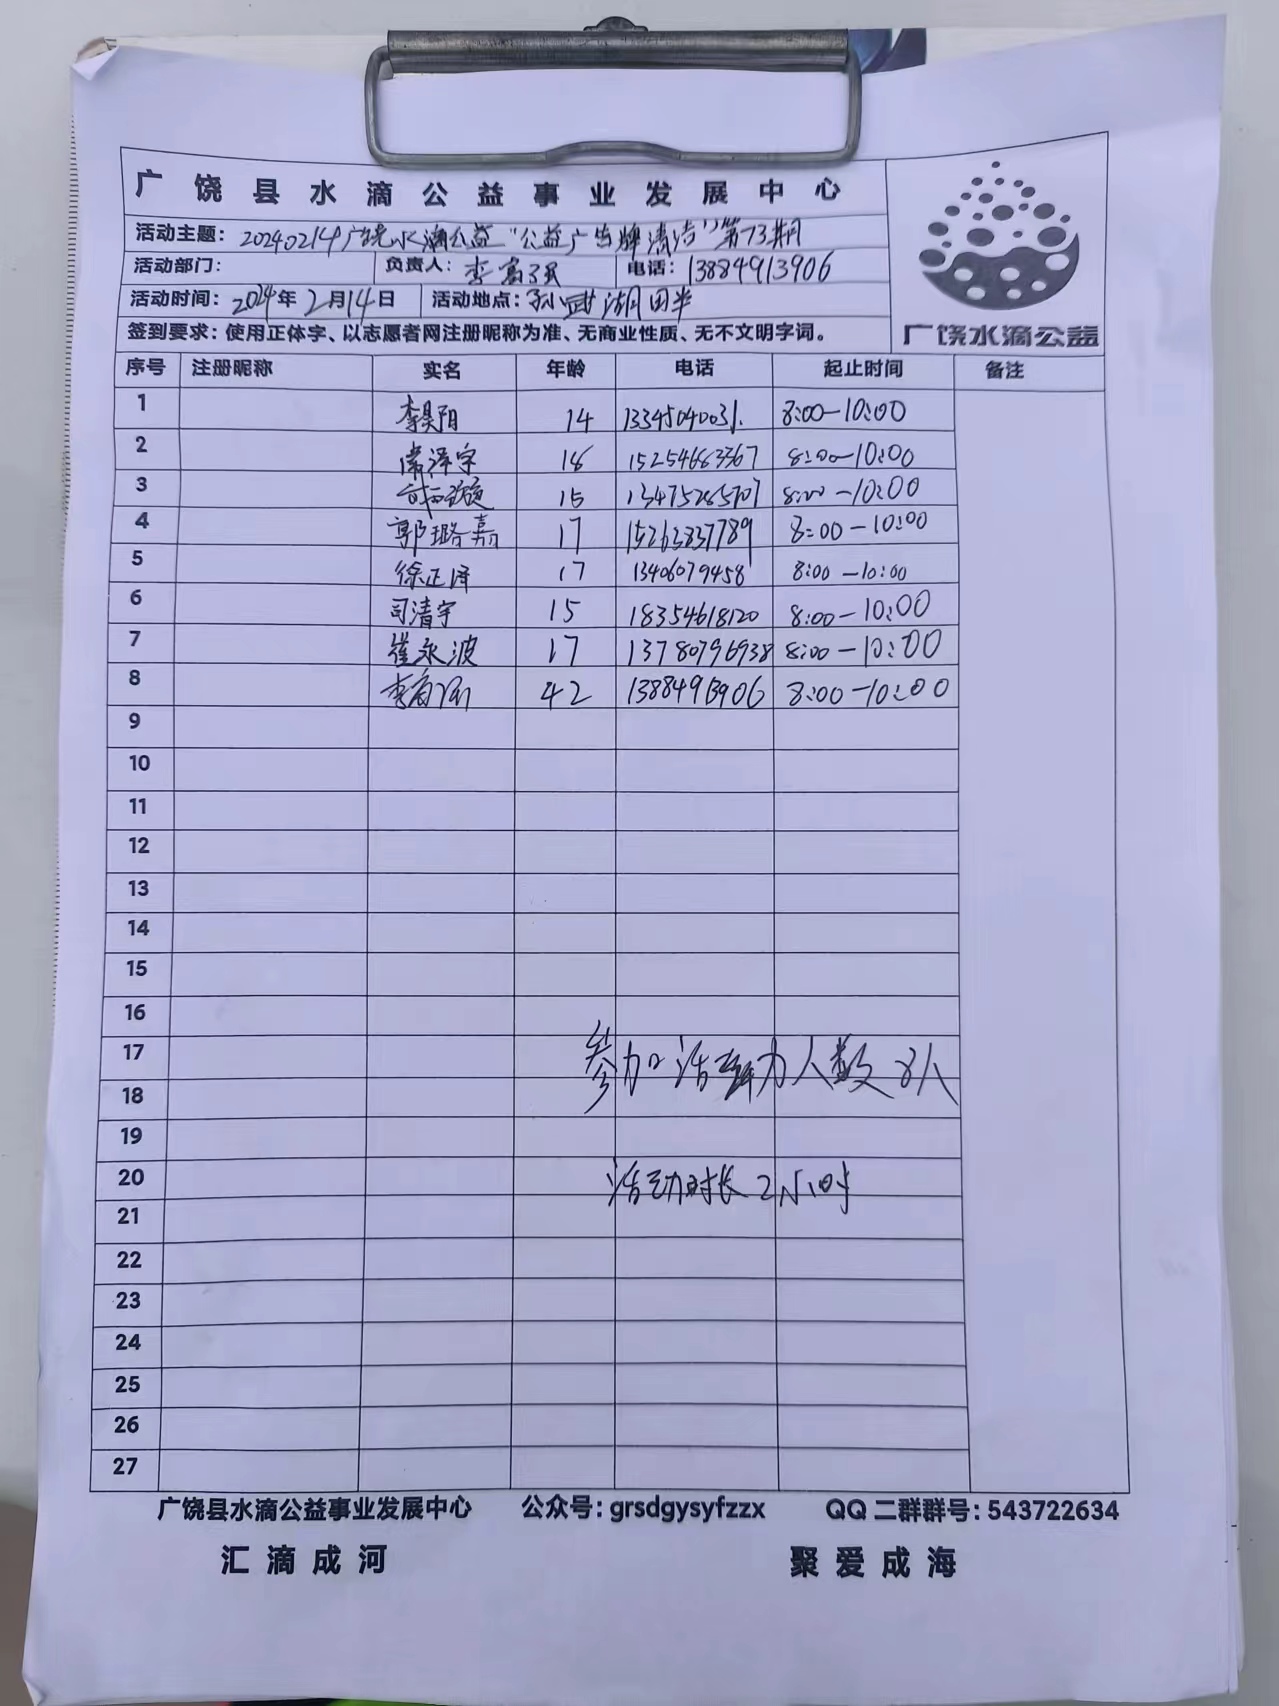 广饶县水滴公益事业发展中心
活动主题：20240214广饶水滴公益“公益广告牌清洁”第73期
活动部门： 负责人： 电话：13884913906
活动时间：2024年2月14日 活动地点：孙武湖田半
签到要求：使用正体字、以志愿者网注册昵称为准、无商业性质、无不文明字词。
广饶水滴公益
序号 注册昵称 实名 年龄 电话 起止时间 备注
1 李昊阳 14 13345040031. 8:00-10:00
2 常泽宇 16 15254663367 8:00-10:00
3 15 13475265707 8:00-10:00
4 郭璐嘉 17 15263837789 8:00-10:00
5 徐正泽 17 13406079458 8:00-10:00
6 司清宇 15 18354618120 8:00-10:00
7 崔永波 17 13780796938 8:00-10:00
8 42 13884913906 8:00-10:00
9
10
11
12
13
14
15
16
17 参加活动人数8人
18
19
20 活动时长2小时
21
22
23
24
25
26
27
广饶县水滴公益事业发展中心 公众号：grsdgysyfzzx QQ二群群号：543722634
汇滴成河 聚爱成海